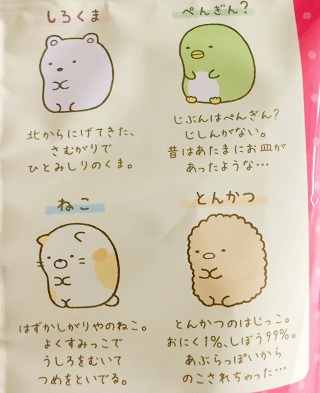 しろくま
北からにげてきた、
さむがりで
ひとみしりのくま。
ぺんぎん?
じぶんはぺんぎん?
じしんがない。
昔はあたまにお皿が
あったような…
ねこ
はずかしがりやのねこ。
よくすみっこで
うしろをむいて
つめをといでる。
とんかつ
とんかつのはじっこ。
おにく1%、しぼう99%。
あぶらっぽいから
のこされちゃった…